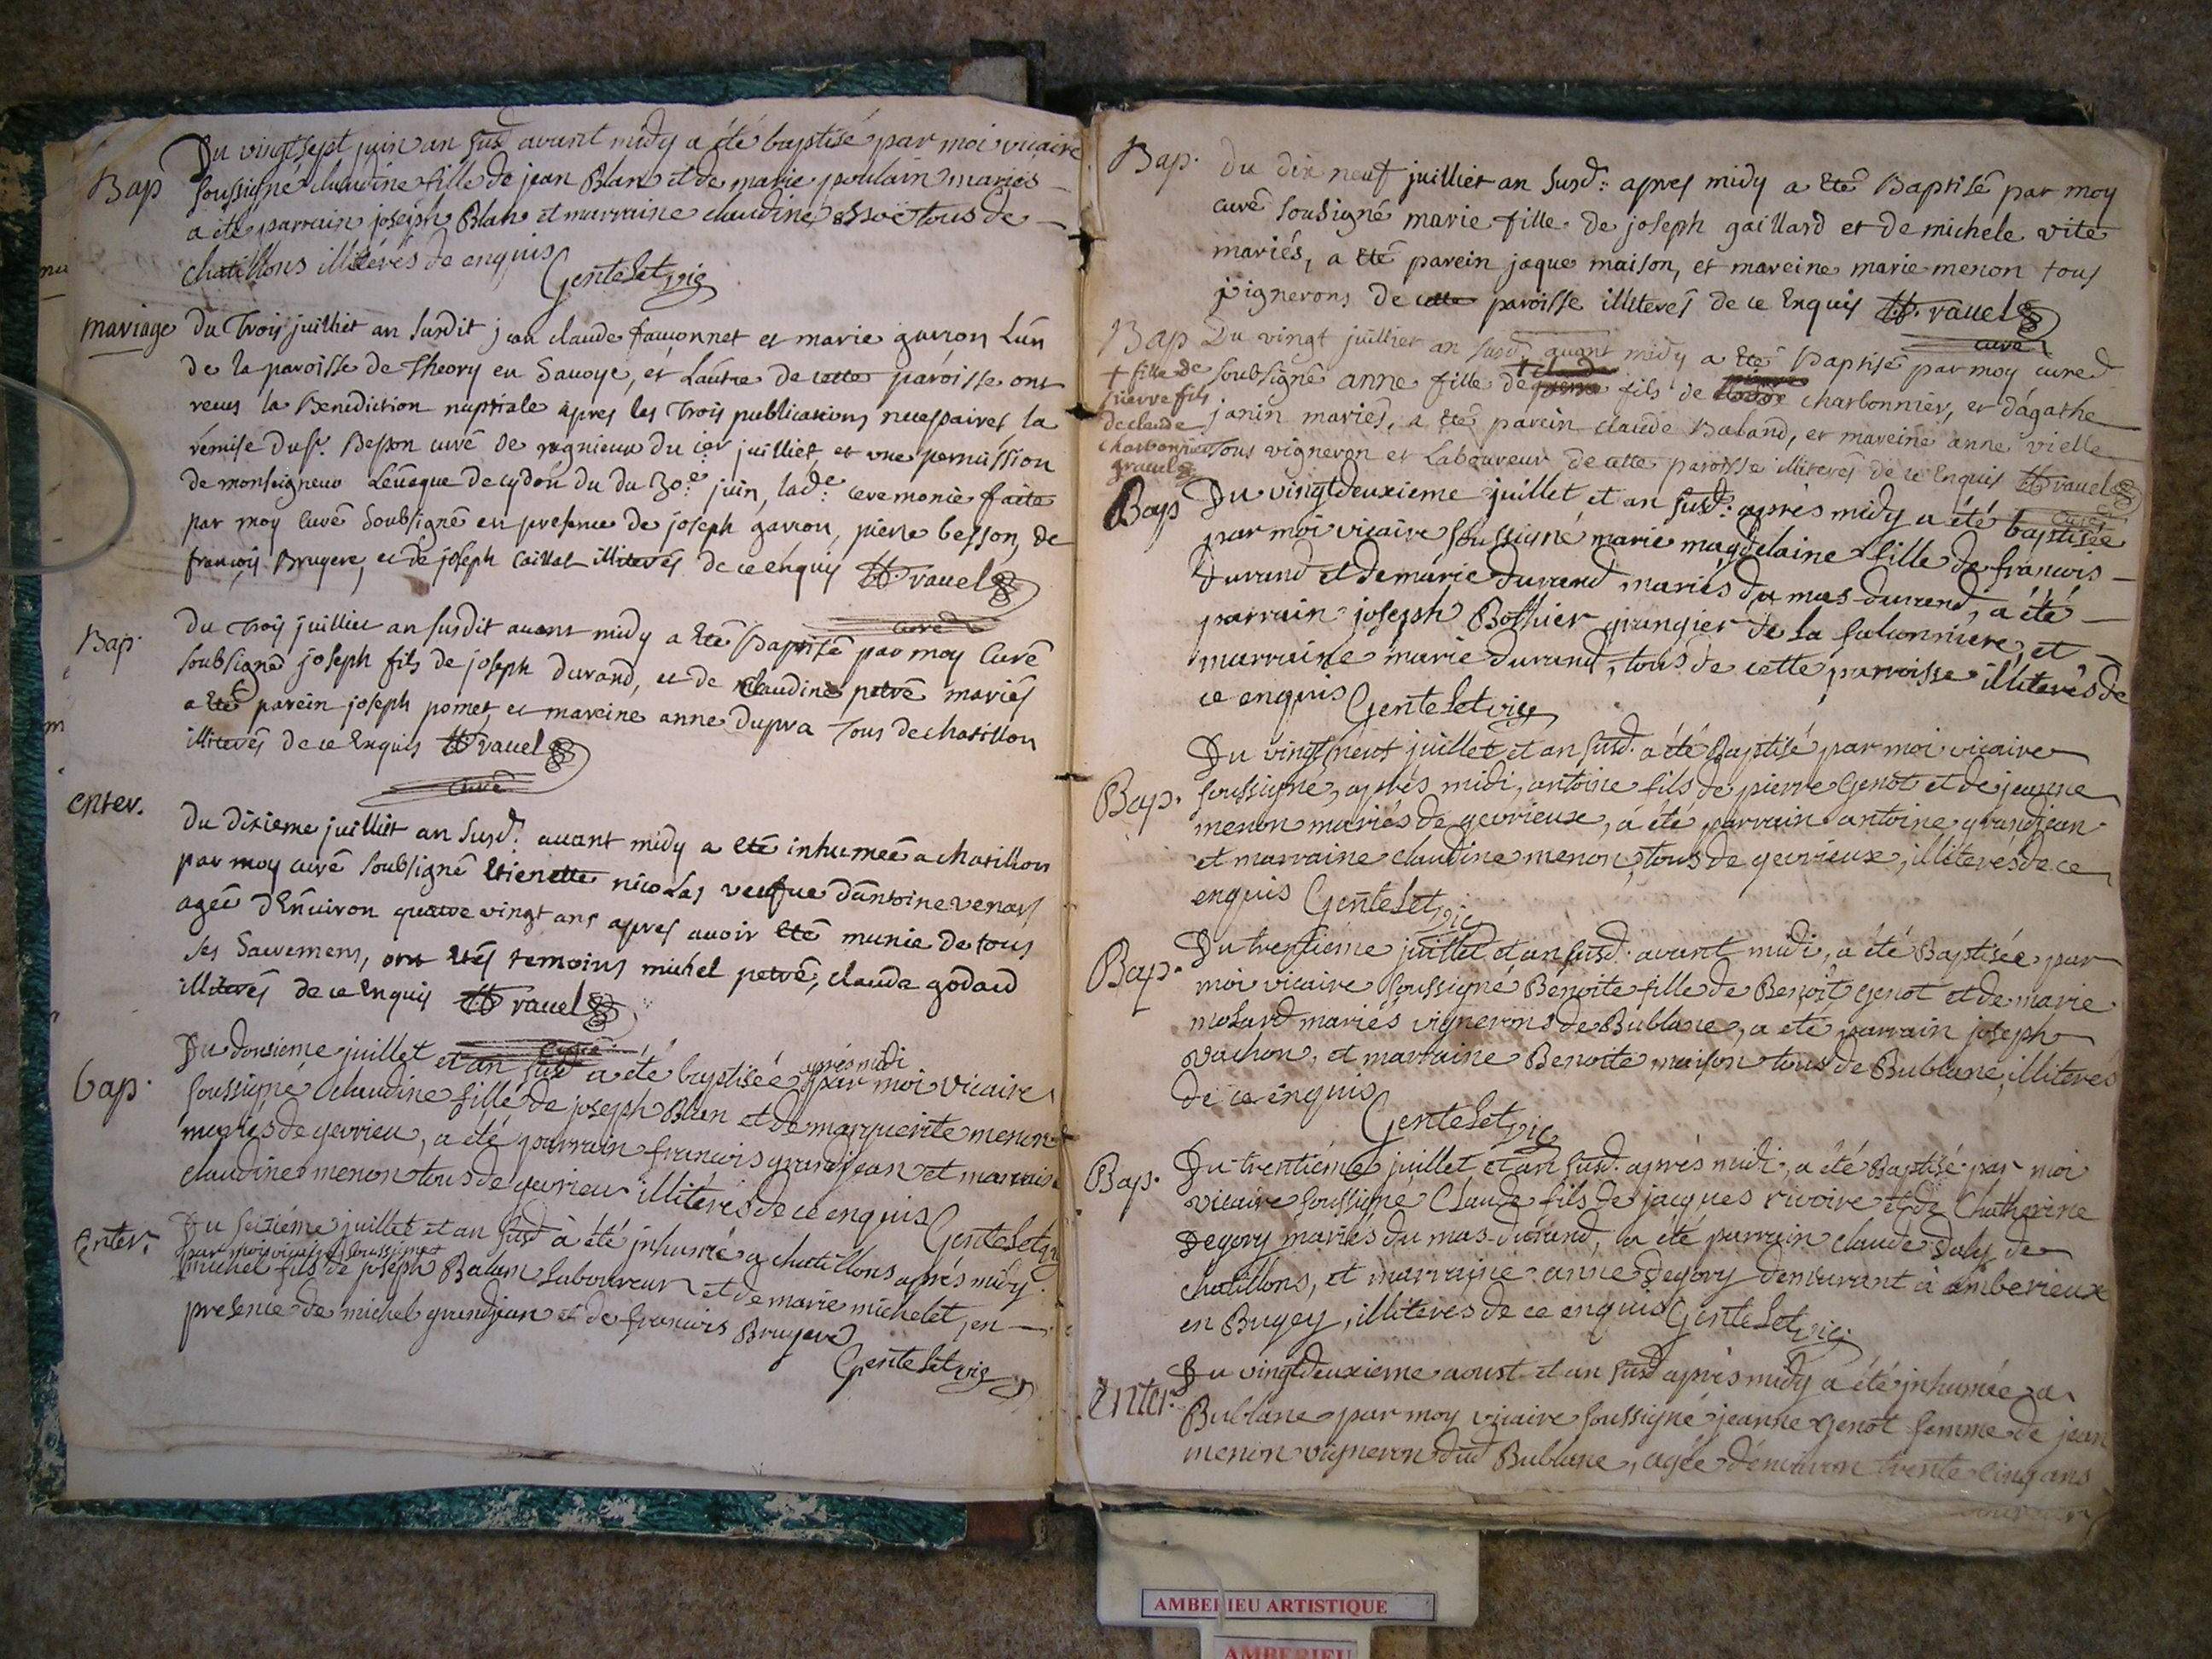 Bap
Du vingt sept juin an susd avant midy a été baptisé par moi vicaire
soussigné claudine fille de jean Blan et de marie poulain mariés
a été parrain joseph Blan et marraine claudine tous de
chatillons illiterés de enquis
Gentelet vic
mariage
du Trois juilliet an susdit jean claude fauonnet et marie garron Lun
de la paroisse de Theory en Savoye, et Lautre de cette paroisse ont
receus la Benediction nuptiale apres les Trois publications necessaires la
remise du sr. Besson curé de regnieux du ier juilliet et une permission
de monseigneur Léueque de cydon du du 30.e juin, lad.e ceremonie faite
par moy curé soubsigné en presence de joseph garron, pierre besson, de
francois Bruyere, et de joseph caillat illiterés de ce enquis ravel
curé
Bap.
du Trois juilliet an susdit avant midy a été Baptisé par moy curé
soubsigné joseph fils de joseph durand, et de claudine petré mariés
a été parein joseph pomet, et mareine anne dupra Tous de chatillon
illiterés de ce Enquis ravel
curé
enter.
du dixieme juilliet an susd. avant midy a été inhumeé a chatillon
par moy curé soubsigné Etienette nicolas veufue dantoine venars
ageé dEnuiron quatre vingt ans apres avoir été munie de tous
ses Sacremens, ont etés temoins michel petré, claude godard
illiterés de ce Enquis ravel
curé
bap.
Du dousieme juillet et an susd a été baptisée après midi par moi vicaire
soussigné claudine fille de joseph Blan et de marguerite menon
mariés de gevrieu, a été parrain francois grandjean et marraine
claudine menon tous de gevrieu illiterés de ce enquis Gentelet
enter.
Du seizième juillet et an susd à été inhumé a chatillons aprés midy
par moi vicaire soussigné
michel fils de joseph Balam laboureur et de marie michelet, en
presence de michel grandjean et de francois Bruyere
Gentelet vic
Bap.
du dix neuf juilliet an susd: apres midy a été Baptisé par moy
curé soubsigné marie fille de joseph gaillard et de michele vite
mariés, a été parein jaque maison, et mareine marie menon tous
vignerons de cette paroisse illiterés de ce Enquis ravel
curé
Bap
Du vingt juilliet an susd. avant midy a été Baptisé par moy curé
soubsigné anne fille de fils de charbonnier, et dagathe
+ fille de
pierre fils
de claude
charbonnier
janin mariés, a été parein claude Baland, et mareine anne vielle
Tous vigneron et Laboureur de cette paroisse illiterés de ce Enquis ravel
curé
Bap
Du vingtdeuxieme juillet et an susd: après midy a été baptisée
par moi vicaire soussigné marie magdelaine fille de francois
Durand et de marie durand mariés du mas durand, a été
parrain joseph Bothier grangier de la et
marraine marie durand, tous de cette parroisse illiterés de
ce enquis Gentelet vic
Bap.
Du vingtneuf juillet et an susd. a été Baptisé par moi vicaire
soussigné, après midi, antoine fils de pierre Genot et de jeanne
menon mariés de gevrieux, a été parrain antoine grandjean
et marraine claudine menon, tous de gevrieux, illiterés de ce
enquis Gentelet vic
Bap.
Du trentième juillet et an susd. avant midi, a été Baptisée par
moi vicaire soussigné Benoite fille de Benoît Genot et de marie
molard mariés vignerons de Bublane, a été parrain joseph
vachon, et marraine Benoite maison tous de Bublane, illiterés
de ce enquis
Gentelet vic
Bap.
Du trentième juillet et an susd. après midi, a été Baptisé par moi
vicaire soussigné, Claude fils de jacques rivoire et de Chatherine
Degory mariés du mas-durand, a été parrain claude Daly de
chatillons, et marraine anne Degory demeurant à amberieux
en Bugey, illiterés de ce enquis Gentelet vic
enter.
Du vingtdeuxieme aoust et an susd après midy a été inhumée a
Bublane par moy vicaire soussigné jeanne Genot femme de jean
menon vigneron dud Bublane, agée d'environ trente cinq ans
AMBERIEU ARTISTIQUE
AMBERIEU